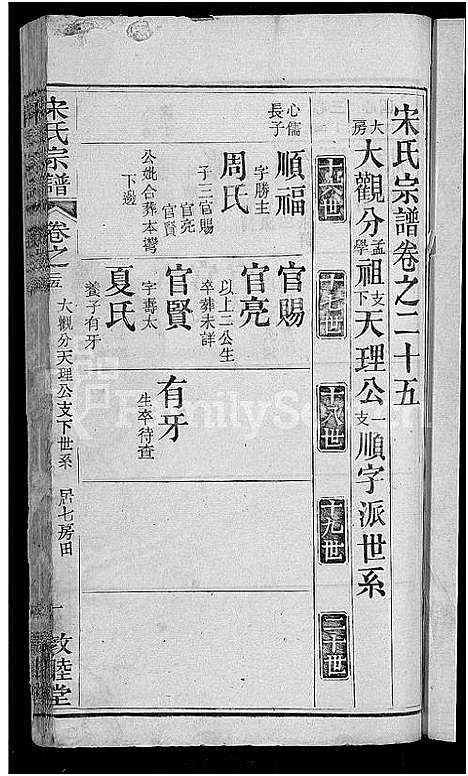 宋氏宗譜卷之二十五
大房大觀分孟學祖支下天理公一支順字派世系
十六世
十七世
十八世
十九世
二十世
心儒長子
順福
字勝主
周氏
子三官賜
官亮
官賢
公妣合葬本灣
下邊
官賜
官亮
以上二公生
卒葬未詳
官賢
字壽太
夏氏
養子有牙
有牙
生卒待查
宋氏宗譜
卷之二十五
大觀分天理公支下世系
居七房田
一
敦睦堂
FamilySearch